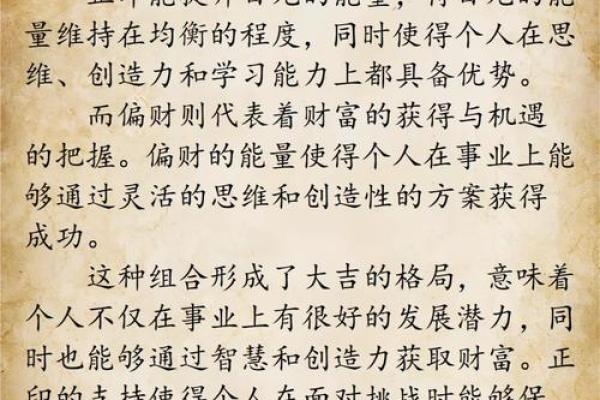 正印能提升日元的能量,将日元的能
量维持在均衡的程度,同时使得个人在思
维、创造力和学习能力上都具备优势。
而偏财则代表着财富的获得与机遇
的把握。偏财的能量使得个人在事业上能
够通过灵活的思维和创造性的方案获得
成功。
这种组合形成了大吉的格局,意味着
个人不仅在事业上有很好的发展潜力,同
时也能够通过智慧和创造力获取财富。正
印的支持使得个人在面对挑战时能够保